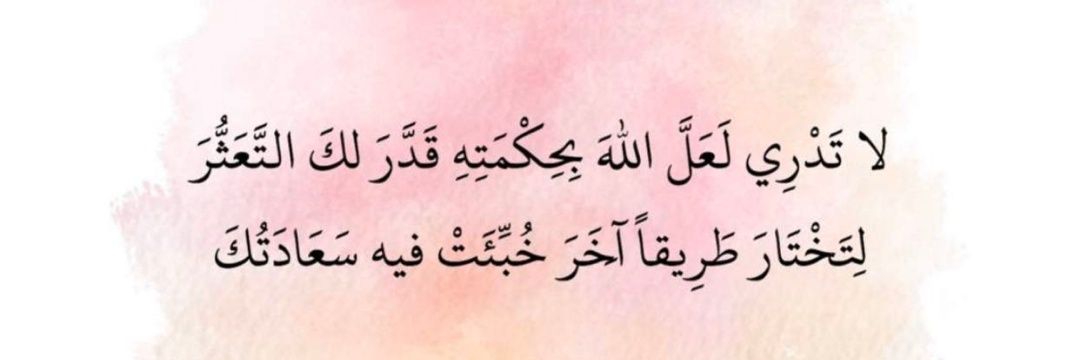 لا تَدْرِي لَعَلَّ اللهَ بِحِكْمَتِهِ قَدَّرَ لكَ التَّعَثُّرَ
لِتَخْتَارَ طَرِيقاً آخَرَ خُبِّئَتْ فيه سَعَادَتُكَ